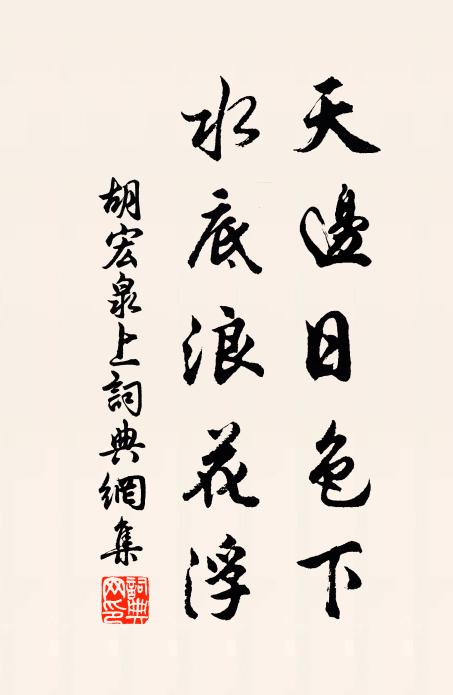 天邊日色下
水底浪花浮
胡宏泉上詞典網集
詞典网印